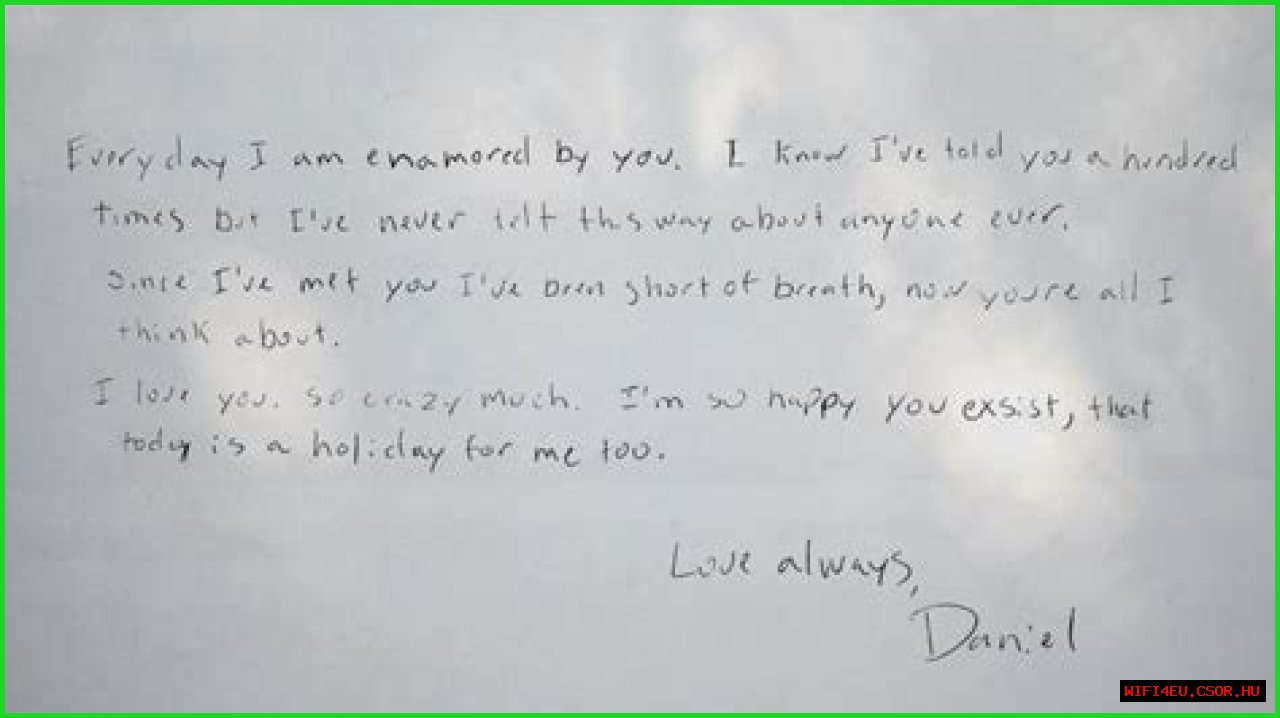 Everyday I am enamored by you. I know I've told you a hundred
times but I've never felt this way about anyone ever.
Since I've met you I've been short of breath, now youre all I
think about.
I love you. so crazy much. I'm so happy you exsist, that
today is a holiday for me too.
Love always,
Daniel
WIFI4EU.CSOR.HU